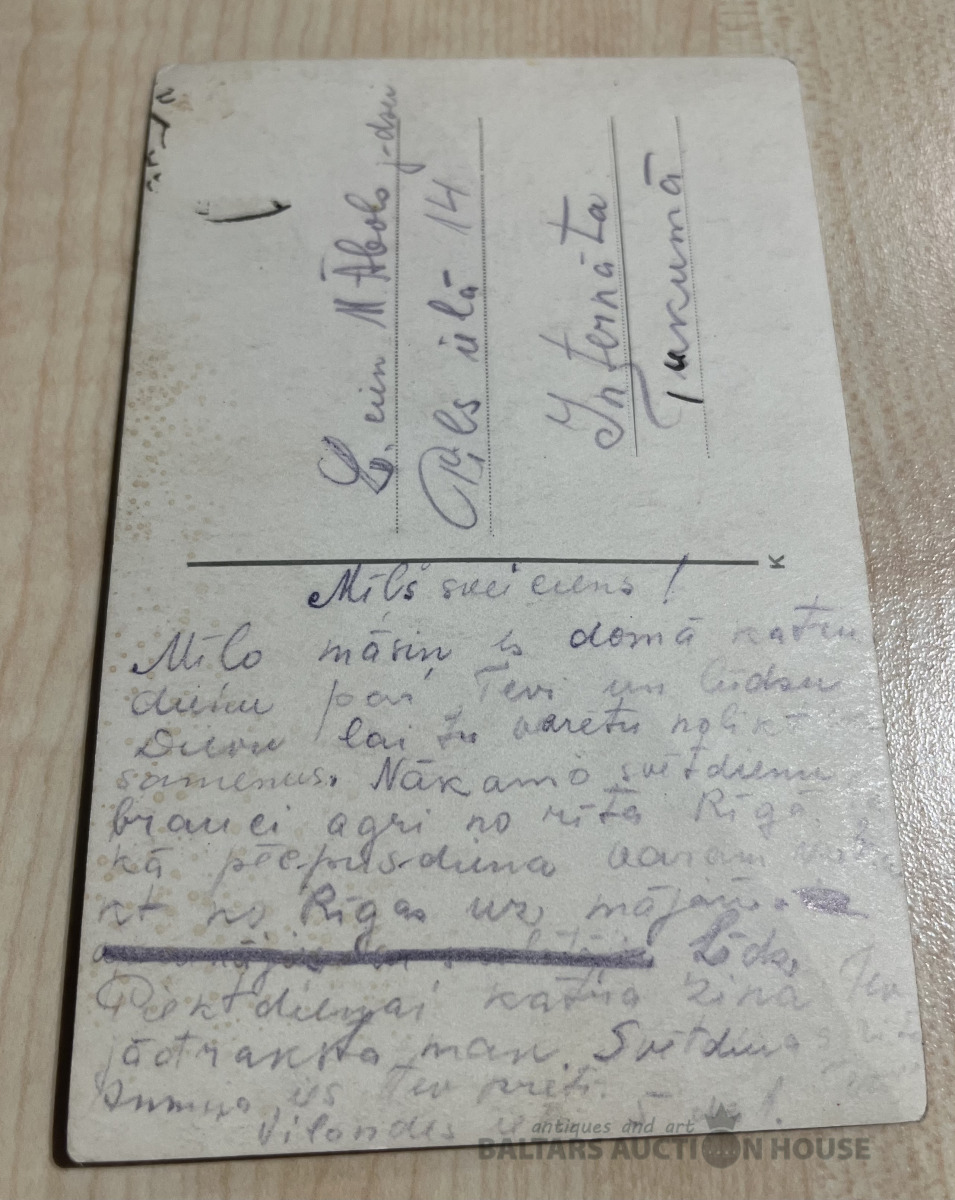 L. cien. M Ābols j-dzei
Pils ielā 14
Internāta
Tukumā
K
Mīļš sveiciens!
Mīļo māsiņ es domā katru
dienu par Tevi un lūdzu
Dievu lai tu varētu nolikt
Nākamo svētdienu
brauci agri no rīta Rīgā
kā pēcpusdiena varam
kt no Rīgas uz mājām.
Līdz
Piektdienai katrā ziņā Tev
jāatraksta man. Svētdienas
Tev preti.
Vilandes
antiques and art
BALTARS AUCTION HOUSE